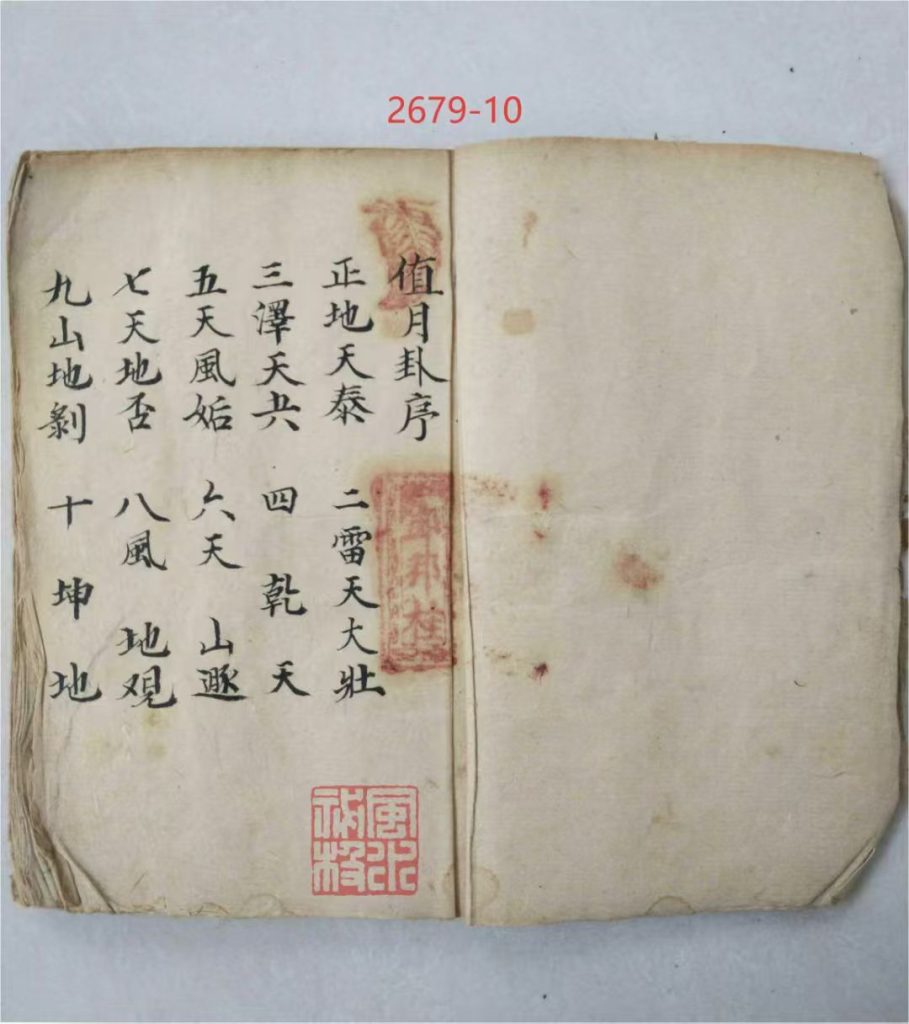 2679-10
值月卦序
正地天泰 二雷天大壯
三澤天夬 四乾天
五天風姤 六天山遯
七天地否 八風地观
九山地剝 十坤地
風水